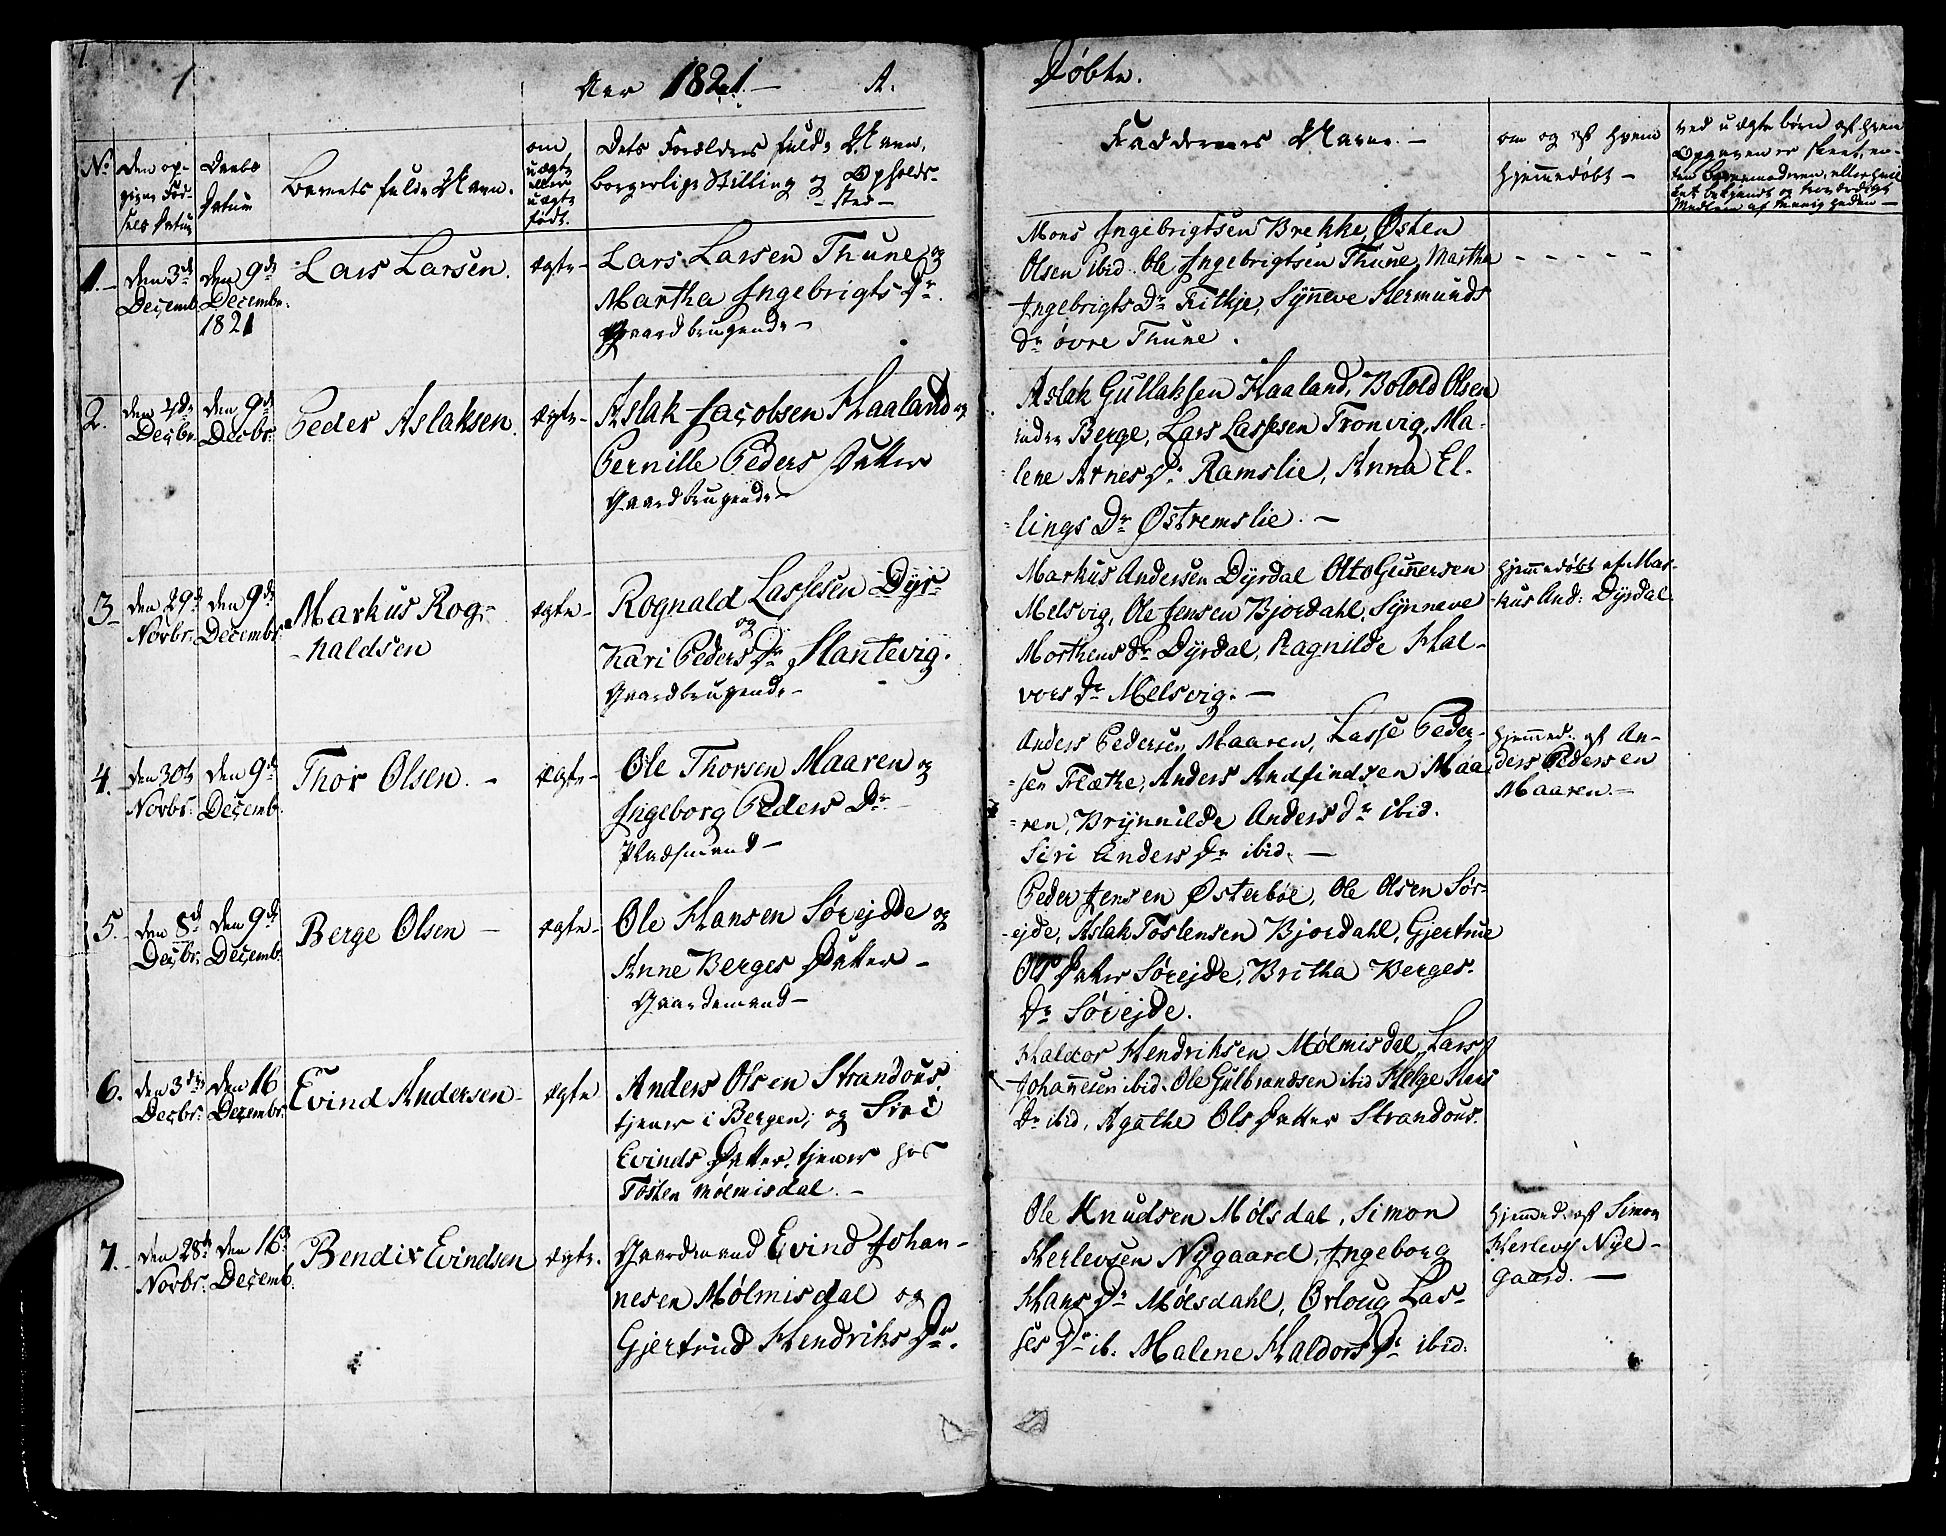 1
Aar 1821. — A.
Døbte.
No.
Den opgivne Fødsels Datum
Daabs Datum
Barnets fulde Navn.
om ægte eller uægte født.
Dets Forældres fulde Navn, borgerlige Stilling og Opholds-sted
Faddernes Navne. —
om og af hvem hjemmedøbt —
ved uægte børn af hvem
1. —
den 3de Decemb.
den 9de Decembr. 1821
Lars Larsen.
ægte —
Lars Larsen Thune og
Martha Ingebrigts Dr.
Gaardbrugende —
Mons Ingebrigtsen Brekke, Østen
Olsen ibid. Ole Ingebrigtsen Thune, Martha
Ingebrigts Dr. Fitkje, Sÿneve Hermunds
Dr. øvre Thune.
2.
den 4de Decbr.
den 9de Decbr.
Peder Aslaksen.
ægte —
Aslak Jacobsen Haaland og
Pernille Peders Datter
Gaardbrugende —
Aslak Gullaksen Haaland, Botold Olsen
indre Berge, Lars Lassesen Tronvig, Ma-
lene Arnes Dr. Ramslie, Anna El-
lings Dr. Østremslie. —
3
den 29de Novbr.
den 9de Decembr.
Markus Rog-
naldsen
ægte —
Rognald Lassesen Dyr
og
Kari Peders Dr. Slantevig.
Gaardbrugende —
Markus Andersen Dyrdal Otto Guñersen
Melsvig, Ole Jensen Bjordahl, Synneve
Morthens Dr. Dyrdal, Ragnilde Hal-
vors Dr. Melsvig. —
hjemmedøbt af Mar-
kus And: Dyrdal
4.
den 30te Novbr.
den 9de Decemb.
Thor Olsen. —
ægte —
Ole Thorsen Maaren og
Ingeborg Peders Dr.
Pladsmand —
Anders Pedersen Maaren, Lasse Peder-
sen Flæthe, Anders Andfindsen Maa-
ren, Brynnilde Anders Dr. ibid.
Siri Anders Dr. ibid. —
hjemmed. af An-
ders Pedersen
Maaren. —
5.
den 8de Decbr.
den 9de Decemb.
Berge Olsen —
ægte —
Ole Hansen Sørejde og
Anne Berges Datter —
Gaardemand —
Peder Jensen Østerbøe, Ole Olsen Sør-
ejde, Aslak Tostensen Bjordahl, Gjertrue
Ols Datter Sørejde, Britha Berges
Dr. Sørejde.
6.
den 3die Decbr.
den 16 Decembr.
Evind Andersen —
ægte
Anders Olsen Strandous,
tjener i Bergen, og Siri
Evinds Datter, tjener hos
Tosten Mølmisdal. —
Haldor Hendriksen Mølmisdal, Lars
Johañesen ibid. Ole Gulbrandsen ibid Helge Hans
Dr. ibid, Agathe Ols Datter Strandous.
7. —
den 28de Novbr.
den 16de Decemb.
Bendix Evindsen
ægte.
Gaardmand Evind Johan-
nesen Mølmisdal og
Gjertrud Hendriks Dr.
Ole Knudsen Mølsdal, Simon
Herlevsen Nygaard, Ingeborg
Hans Dr. Mølsdahl, Orloug Las-
ses Dr. ib. Malene Haldors Dr. ibid.
hjemmed. af Simon
Herlevs Nye-
gaard. —